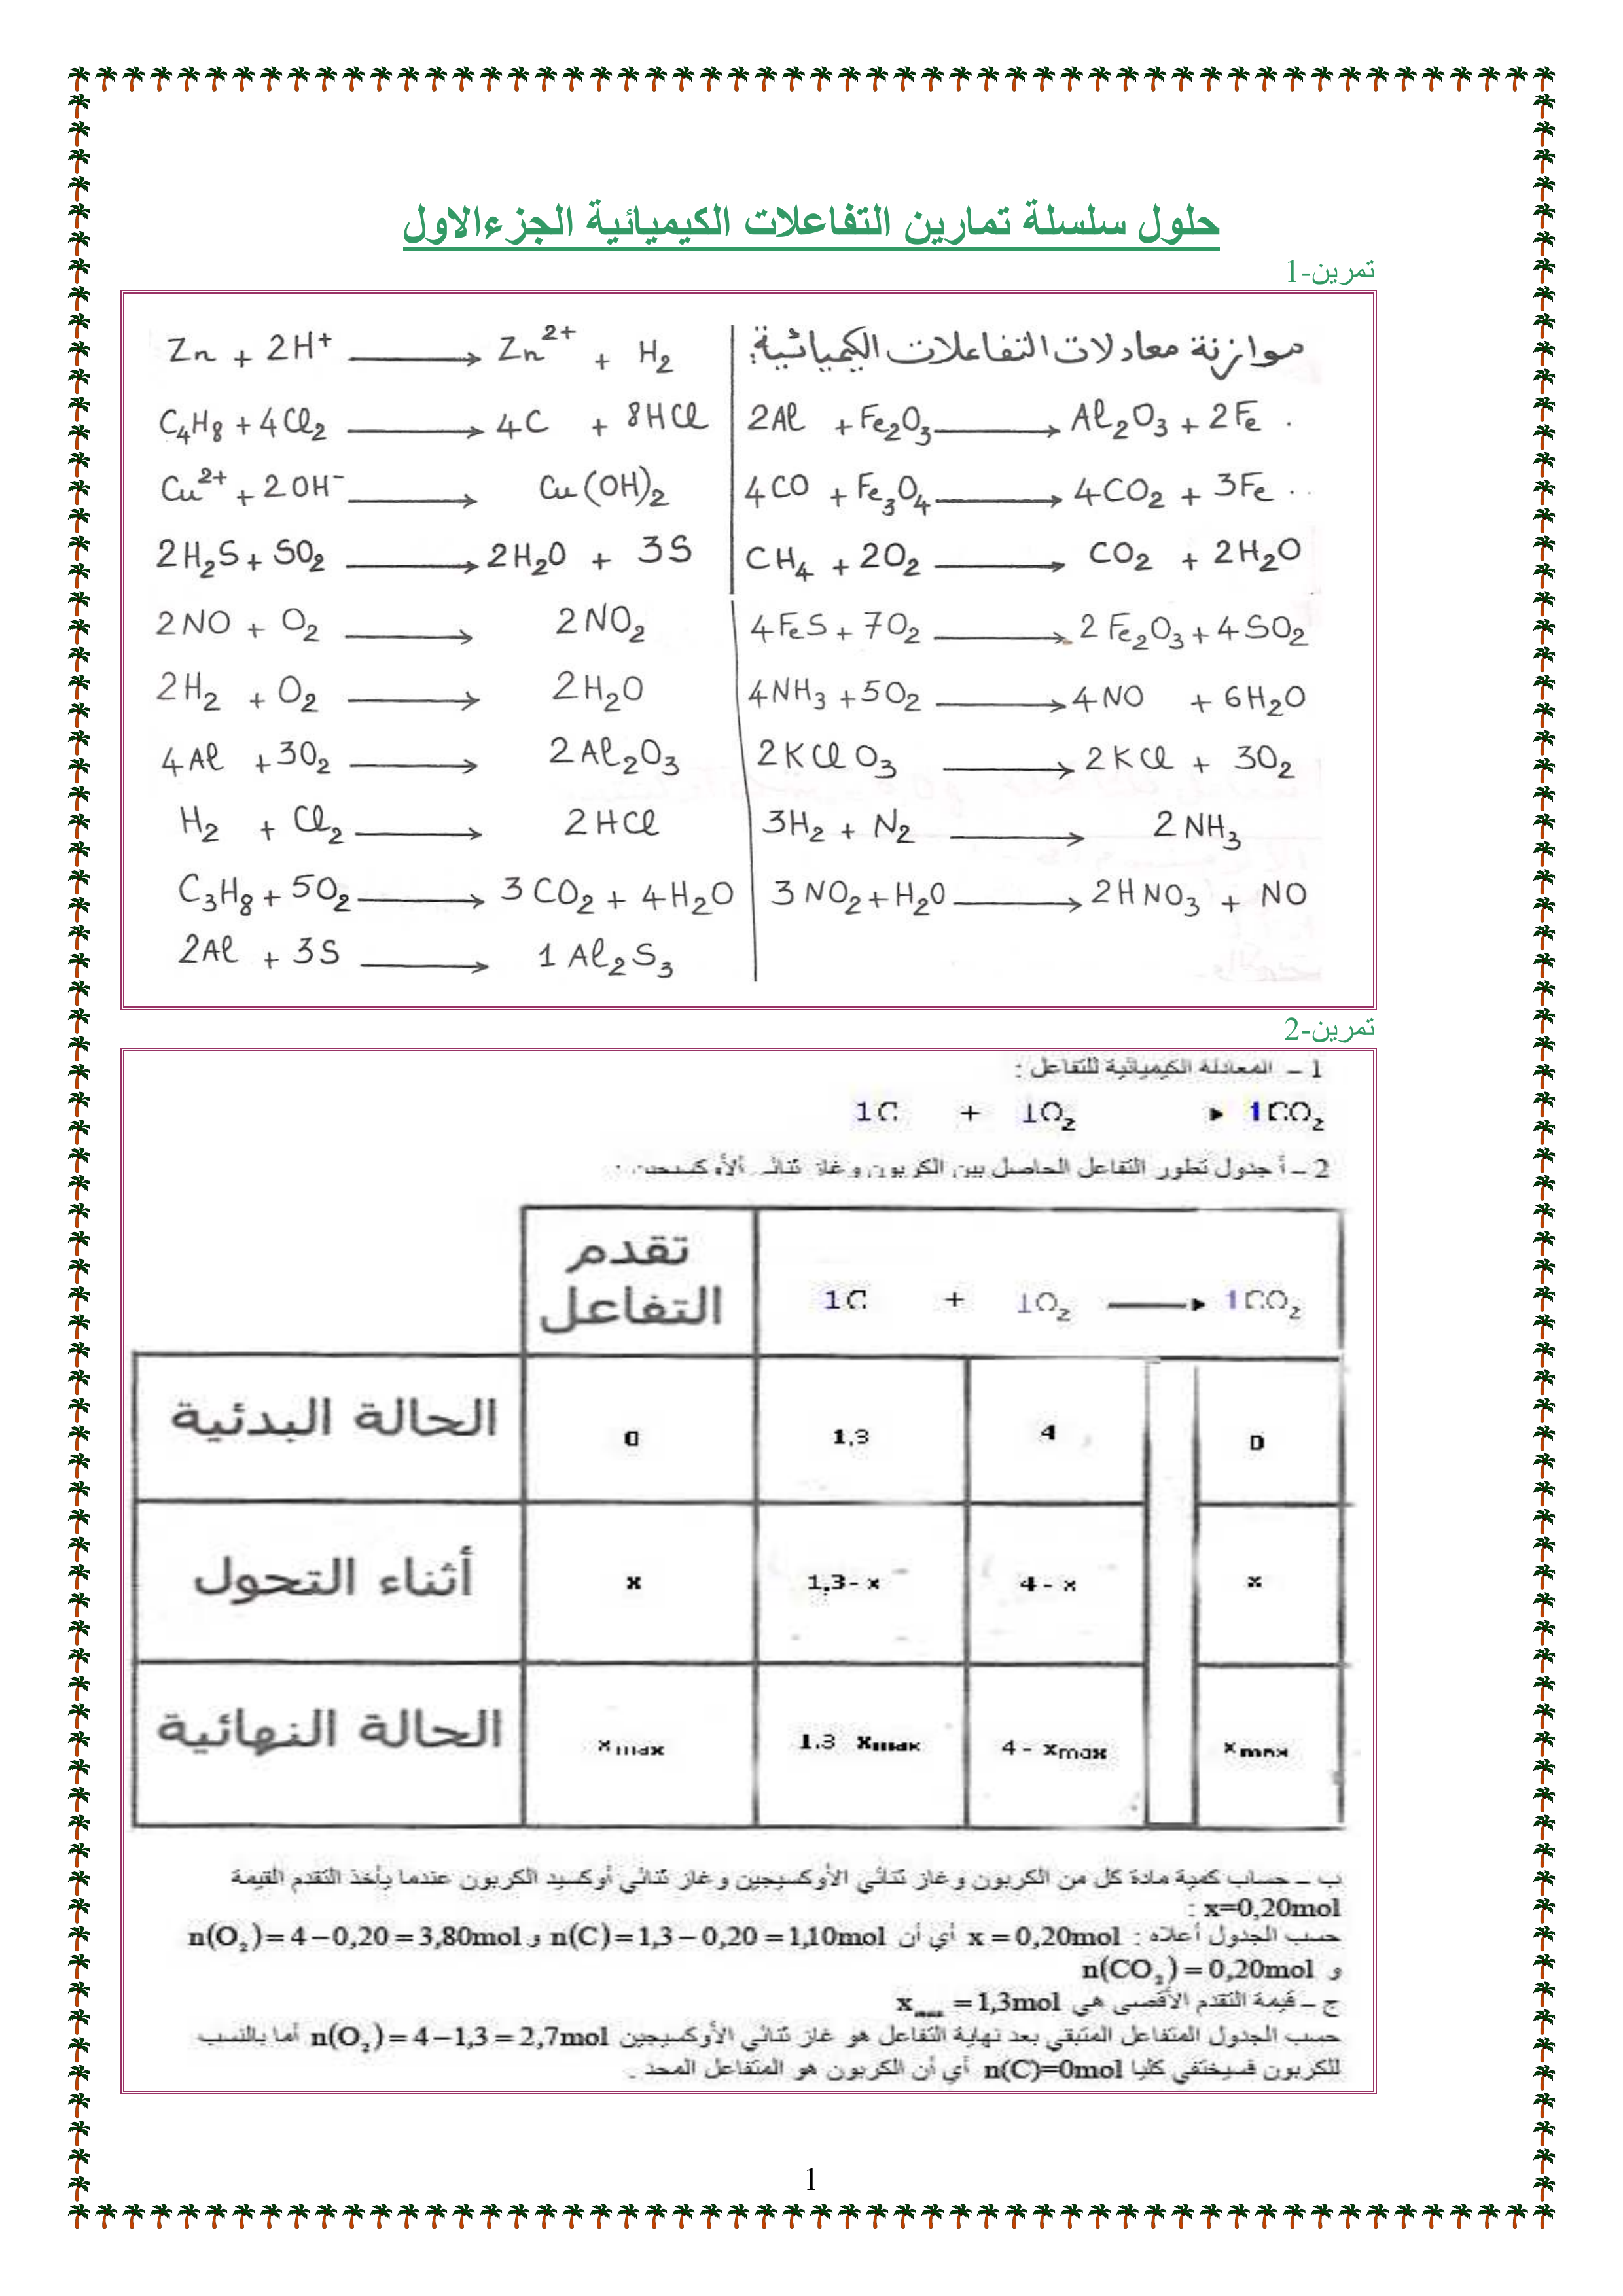 حلول سلسلة تمارين التفاعلات الكيميائية الجزءالاول
تمرين-1
موازنة معادلات التفاعلات الكيميائية:
2Al + Fe₂O₃ ⟶ Al₂O₃ + 2Fe .
4CO + Fe₃O₄ ⟶ 4CO₂ + 3Fe ..
CH₄ + 2O₂ ⟶ CO₂ + 2H₂O
4FeS + 7O₂ ⟶ 2Fe₂O₃ + 4SO₂
4NH₃ + 5O₂ ⟶ 4NO + 6H₂O
2KClO₃ ⟶ 2KCl + 3O₂
3H₂ + N₂ ⟶ 2NH₃
3NO₂ + H₂O ⟶ 2HNO₃ + NO
Zn + 2H⁺ ⟶ Zn²⁺ + H₂
C₄H₈ + 4Cl₂ ⟶ 4C + 8HCl
Cu²⁺ + 2OH⁻ ⟶ Cu(OH)₂
2H₂S + SO₂ ⟶ 2H₂O + 3S
2NO + O₂ ⟶ 2NO₂
2H₂ + O₂ ⟶ 2H₂O
4Al + 3O₂ ⟶ 2Al₂O₃
H₂ + Cl₂ ⟶ 2HCl
C₃H₈ + 5O₂ ⟶ 3CO₂ + 4H₂O
2Al + 3S ⟶ 1Al₂S₃
تمرين-2
1 – المعادلة الكيميائية للتفاعل :
1C + 1O₂ ► 1CO₂
2 – أ جدول تطور التفاعل الحاصل بين الكربون وغاز ثنائي الأوكسيجين :
تقدم
التفاعل
1C + 1O₂ ⟶ 1CO₂
الحالة البدئية
0 1,3 4 0
أثناء التحول
x 1,3- x 4 - x x
الحالة النهائية
xmax 1.3 xmax 4 - xmax xmax
ب – حساب كمية مادة كل من الكربون وغاز ثنائي الأوكسيجين وغاز ثنائي أوكسيد الكربون عندما يأخذ التقدم القيمة
x=0,20mol :
حسب الجدول أعلاه : x = 0,20mol أي أن n(C)=1,3−0,20=1,10mol و n(O₂)=4−0,20=3,80mol
و n(CO₂)=0,20mol
ج – قيمة التقدم الأقصى هي xmax =1,3mol
حسب الجدول المتفاعل المتبقي بعد نهاية التفاعل هو غاز ثنائي الأوكسيجين n(O₂)=4−1,3=2,7mol أما بالنسب
للكربون فسيختفي كليا n(C)=0mol أي أن الكربون هو المتفاعل المحد .
1